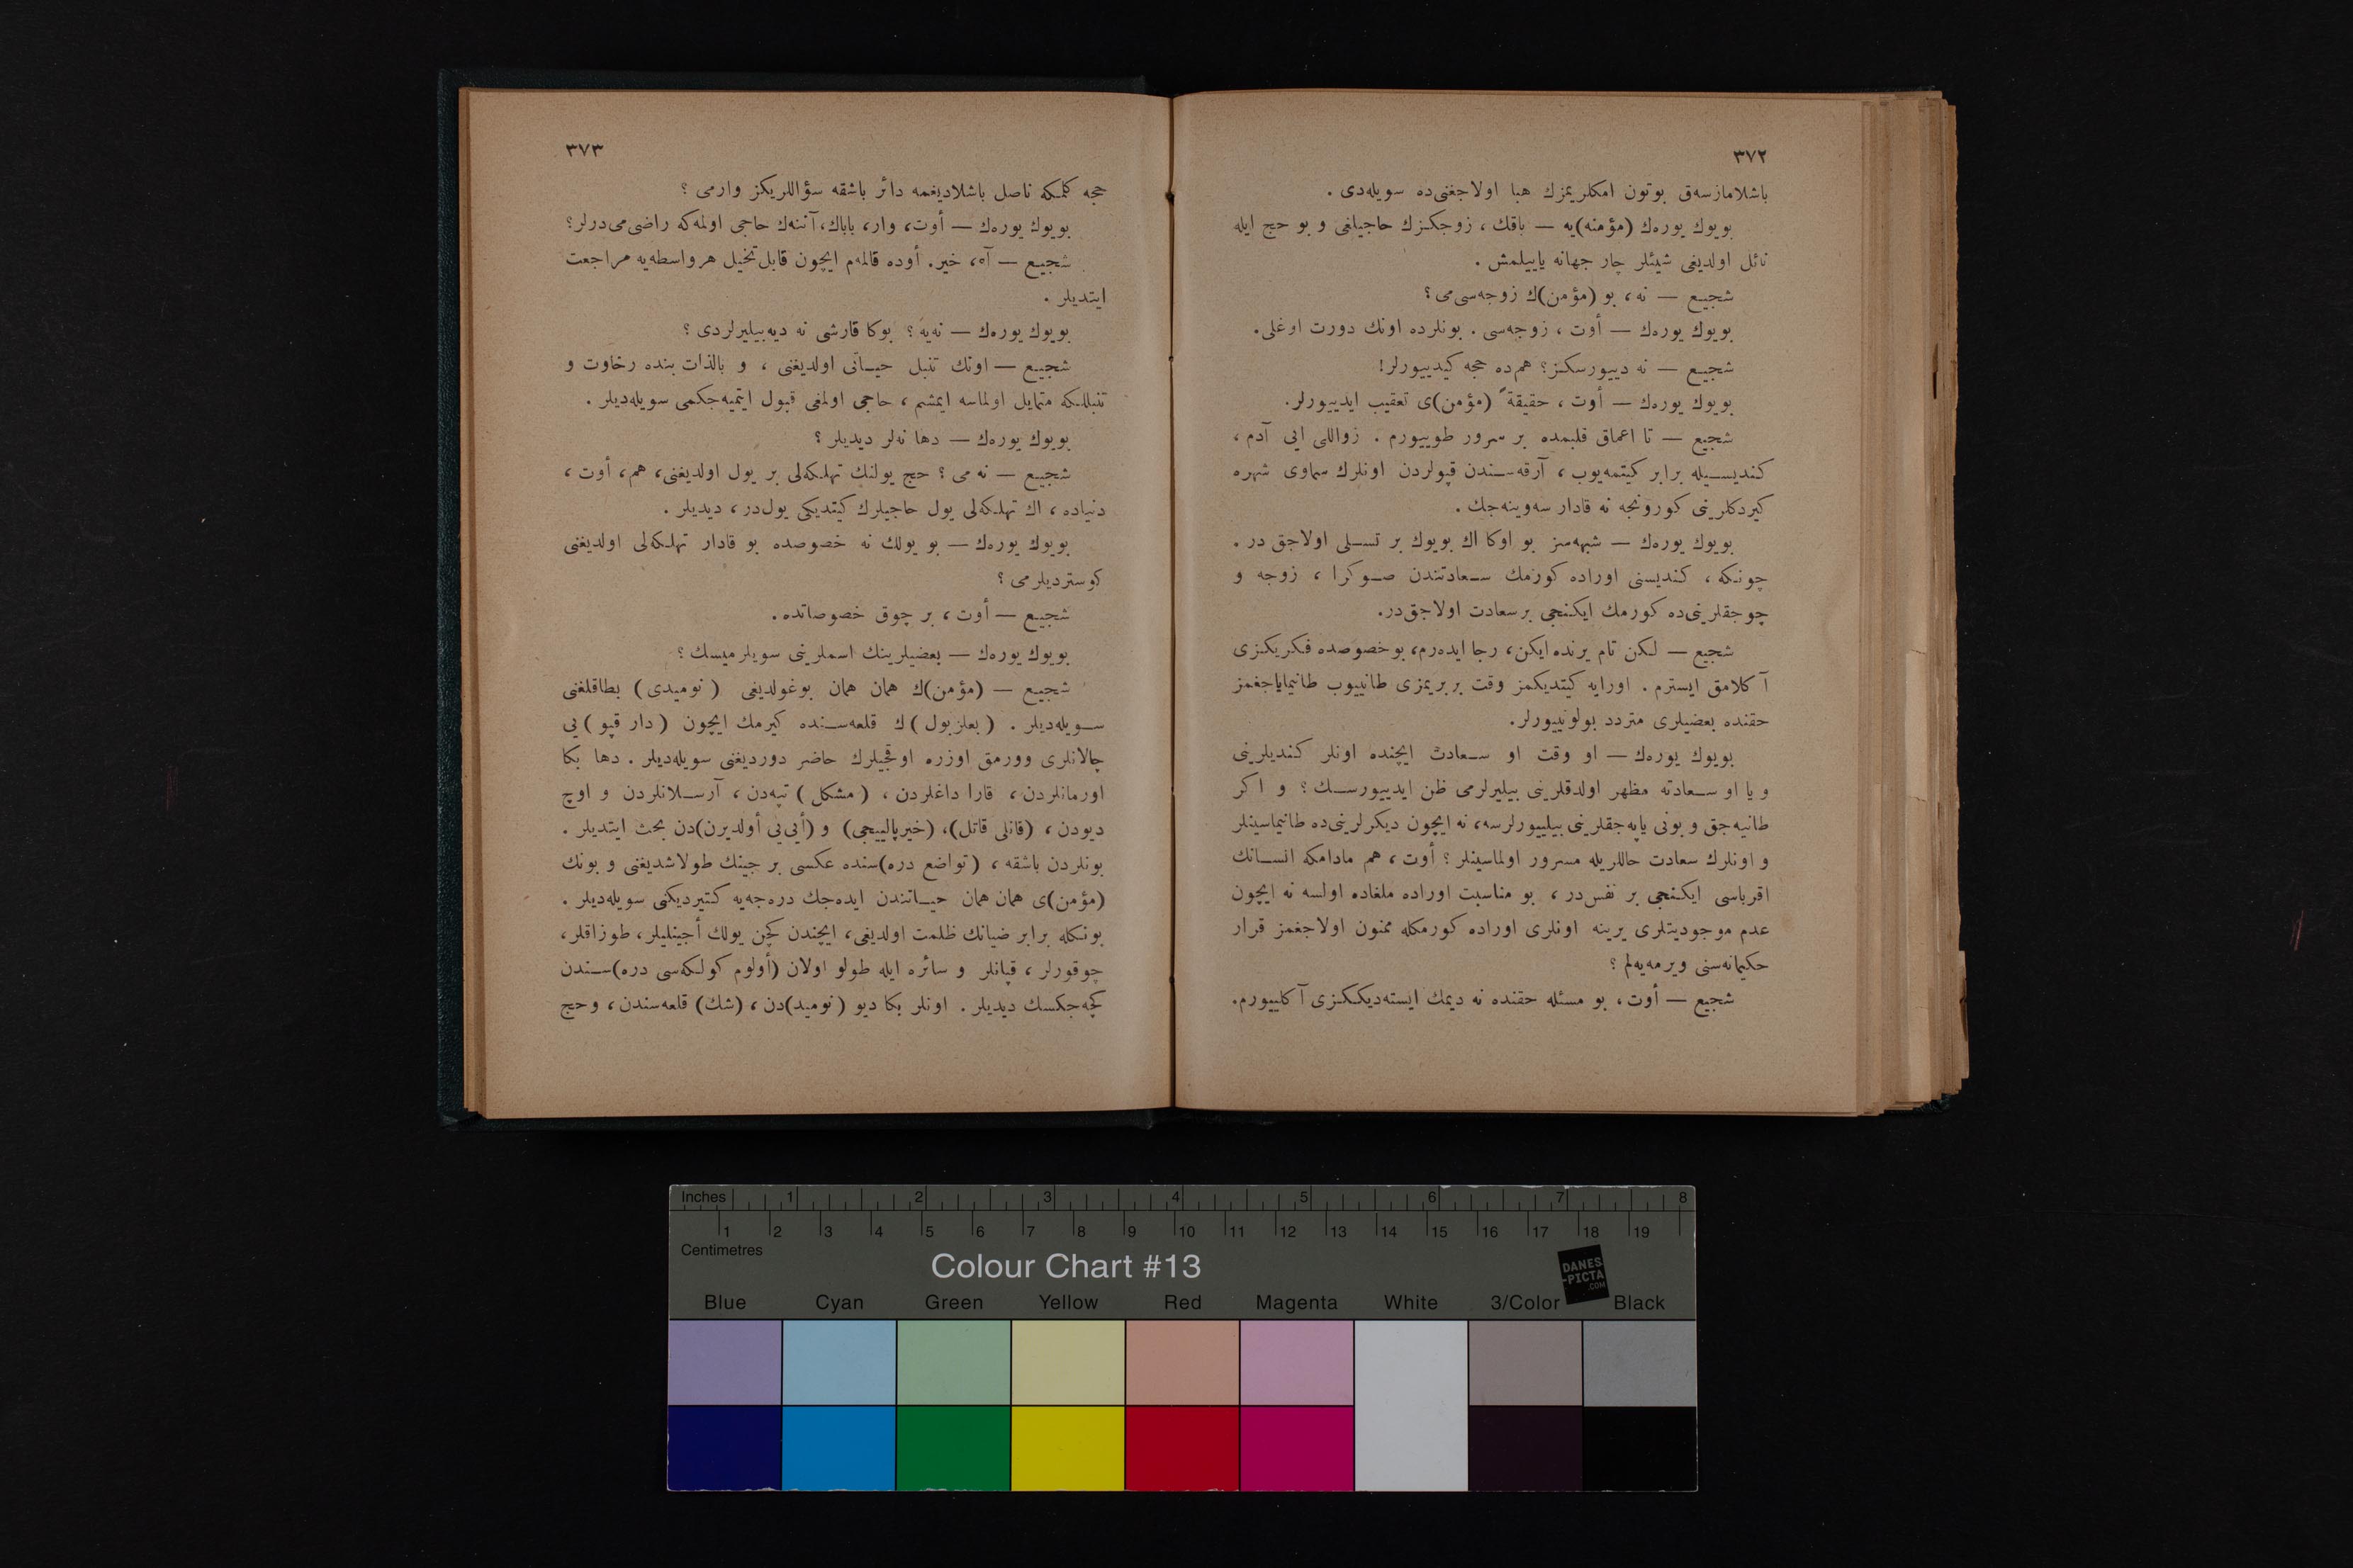 ٣٧٢
باشلامازسه‌ق بوتون امكلريمزك هبا اولاجغنى‌ده سويله‌دى .
بويوك يوره‌ك (مؤمنه)يه — باقك ، زوجكزك حاجيلغى و بو حج ايله
نائل اولديغى شيئلر چار جهانه يايیلمش .
شجيع — نه ، بو (مؤمن)ك زوجه‌سى‌مى ؟
بويوك يوره‌ك — أوت ، زوجه‌سى . بونلرده اونك دورت اوغلى.
شجيع — نه دييورسكز؟ هم‌ده حجه كيدييورلر!
بويوك يوره‌ك — أوت ، حقيقةً (مؤمن)ى تعقيب ايدييورلر.
شجيع — تا اعماق قلبمده بر سرور طوييورم . زواللى ايى آدم ،
كنديسيله برابر كيتمه‌يوب ، آرقه‌سندن قپولردن اونلرك سماوى شهره
كيردكلرينى كورونجه نه قادار سه‌وينه‌جك .
بويوك يوره‌ك — شبهه‌سز بو اوكا اك بويوك بر تسلى اولاجق در .
چونكه ، كنديسنى اوراده كورمك سعادتندن صوكرا ، زوجه و
چوجقلرينى‌ده كورمك ايكنجى بر سعادت اولاجق‌در.
شجيع — لكن تام يرنده ايكن، رجا ايده‌رم، بو خصوصده فكريكزى
آكلامق ايسترم . اورايه كيتديكمز وقت بربريمزى طانييوب طانيماياجغمز
حقنده بعضيلرى متردد بولونييورلر.
بويوك يوره‌ك — او وقت او سعادت ايچنده اونلر كنديلرينى
و يا او سعادته مظهر اولدقلرينى بيليرلرمى ظن ايدييورسك ؟ و اكر
طانيه‌جق و بونى ياپه‌جقلرينى بيلييورلرسه، نه ايچون ديكرلرينى‌ده طانيماسينلر
و اونلرك سعادت حاللريله مسرور اولماسينلر ؟ أوت ، هم مادامكه انسانك
اقرباسى ايكنجى بر نفس‌در ، بو مناسبت اوراده ملغاده اولسه نه ايچون
عدم موجوديتلرى يرينه اونلرى اوراده كورمكله ممنون اولاجغمز قرار
حكيمانه‌سنى ويرمه‌يه‌لم ؟
شجيع — أوت، بو مسئله حقنده نه ديمك ايسته‌ديككزى آكلييورم.
٣٧٣
حجه كلمكه ناصل باشلاديغمه دائر باشقه سؤاللريكز وارمى ؟
بويوك يوره‌ك — أوت، وار، باباك، آننه‌ك حاجى اولمه‌كه راضى‌مى‌درلر؟
شجيع — آه، خير. أوده قالمه‌م ايچون قابل تخيل هر واسطه‌يه مراجعت
ايتديلر .
بويوك يوره‌ك — نه‌يه ؟ بوكا قارشى نه ديه‌بيليرلردى ؟
شجيع — اونك تنبل حياتى اولديغنى ، و بالذات بنده رخاوت و
تنبللكه متمايل اولماسه ايمشم ، حاجى اولمغى قبول ايتميه‌جكمى سويله‌ديلر .
بويوك يوره‌ك — دها نه‌لر ديديلر ؟
شجيع — نه مى ؟ حج يولنك تهلكه‌لى بر يول اولديغنى، هم، أوت ،
دنياده ، اك تهلكه‌لى يول حاجيلرك كيتديكى يول‌در ، ديديلر .
بويوك يوره‌ك — بو يولك نه خصوصده بو قادار تهلكه‌لى اولديغنى
كوسترديلرمى ؟
شجيع — أوت ، بر چوق خصوصاتده .
بويوك يوره‌ك — بعضيلرينك اسملرينى سويلرميسك ؟
شجيع — (مؤمن)ك همان همان بوغولديغى (نوميدى) بطاقلغنى
سويله‌ديلر . (بعلزبول)ك قلعه‌سنده كيرمك ايچون (دار قپو)يى
چالانلرى وورمق اوزره اوقجيلرك حاضر دورديغنى سويله‌ديلر . دها بكا
اورمانلردن، قارا داغلردن ، (مشكل) تپه‌دن ، آرسلانلردن و اوچ
ديودن ، (قانلى قاتل)، (خيرپالييجى) و (أيى‌يى أولديرن)دن بحث ايتديلر .
بونلردن باشقه ، (تواضع دره)سنده عكسى بر جينك طولاشديغنى و بونك
(مؤمن)ى همان همان حياتندن ايده‌جك دره‌جه‌يه كتيرديكنى سويله‌ديلر .
بونكله برابر ضيانك ظلمت اولديغى، ايچندن كچن يولك أجينليلر، طوزاقلر،
چوقورلر ، قپانلر و سائره ايله طولو اولان (أولوم كولكه‌سى دره)سندن
كچه‌جكسك ديديلر . اونلر بكا ديو (نوميد)دن ، (شك) قلعه‌سندن ، وحج
Inches 1 2 3 4 5 6 7 8
1 2 3 4 5 6 7 8 9 10 11 12 13 14 15 16 17 18 19
Centimetres
Colour Chart #13
DANES
-PICTA
.COM
Blue Cyan Green Yellow Red Magenta White 3/Color Black